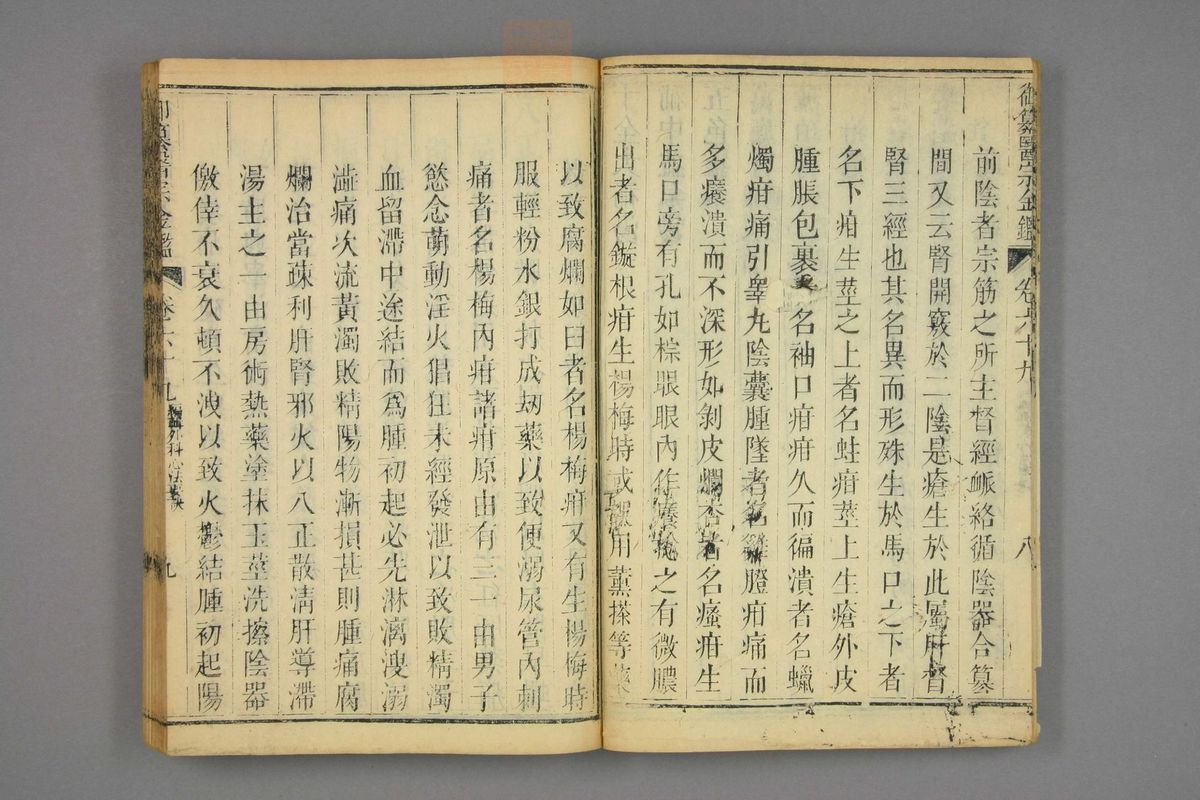 御纂醫宗金鑑 卷六十九 八
前陰者宗筋之所主督經脈絡循陰器合篡
間又云腎開竅於二陰是瘡生於此屬肝督
腎三經也其名異而形殊生於馬口之下者
名下疳生莖之上者名蛀疳莖上生瘡外皮
腫脹包裹 名袖口疳疳久而徧潰者名蠟
燭疳痛引睾丸陰囊腫墜者名雞膯疳痛而
多癢潰而不深形如剝皮爛杏者名瘙疳生
馬口旁有孔如棕眼眼內作癢 之有微膿
出者名鏇根疳生楊梅時或 用薰搽等藥
以致腐爛如臼者名楊梅疳又有生楊梅時
服輕粉水銀打成劫藥以致便溺尿管內刺
痛者名楊梅內疳諸疳原由有三一由男子
慾念萌動淫火猖狂未經發泄以致敗精濁
血留滯中途結而爲腫初起必先淋漓溲溺
澁痛次流黃濁敗精陽物漸損甚則腫痛腐
爛治當疎利肝腎邪火以八正散淸肝導滯
湯主之一由房術熱藥塗抹玉莖洗擦陰器
僥倖不衰久頓不洩以致火鬱結腫初起陽
御纂醫宗金鑑 卷六十九 編輯外科心法要訣 九